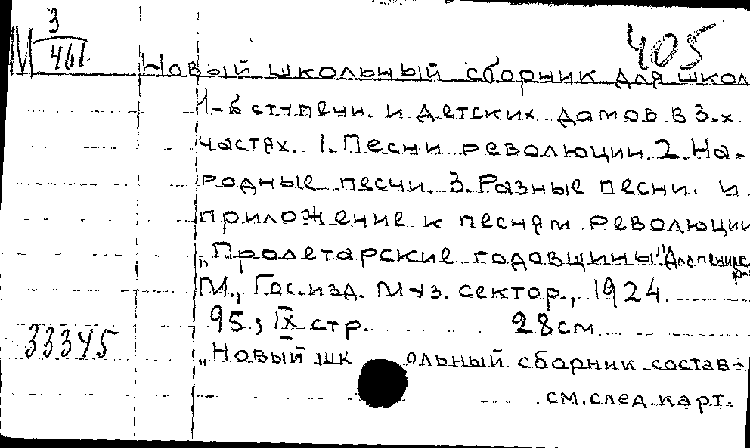 М 3/461
405
Новый школьный сборник для школ
1-й ступени и детских домов в 3-х
частях. 1. Песни революции. 2. На-
родные песни. 3. Разные песни. и
приложение к песням революции
„Пролетарские годовщины"
М., Гос. изд. Муз. сектор., 1924.
95., IX стр. 28 см
33345
„Новый шк ольный сборник состав-
см. след. карт.